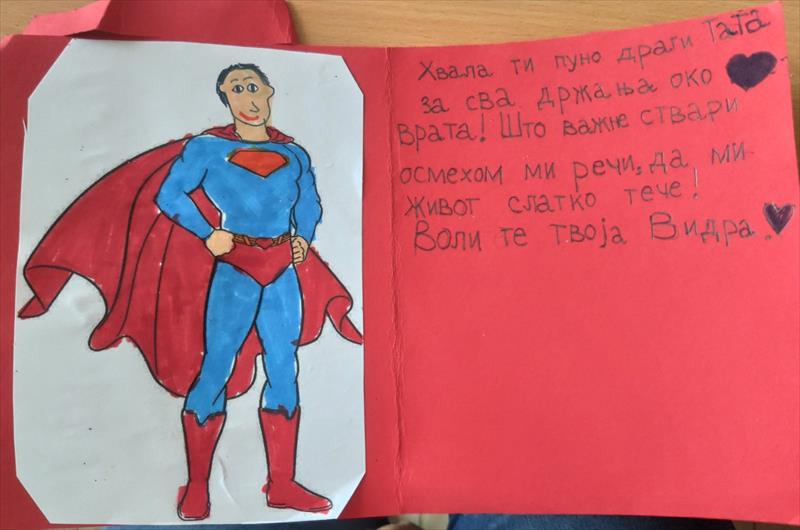 Хвала ти пуно драги Тата
за сва држања око
врата! Што важне ствари
осмехом ми речи, да ми
живот слатко тече!
Воли те твоја Видра.